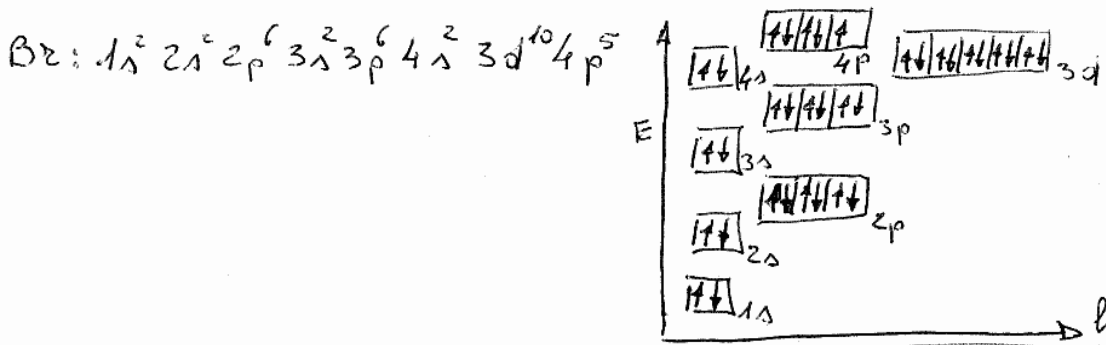 Br: 1s² 2s² 2p⁶ 3s² 3p⁶ 4s² 3d¹⁰ 4p⁵
4p
4s
3d
E
3p
3s
2p
2s
1s
l